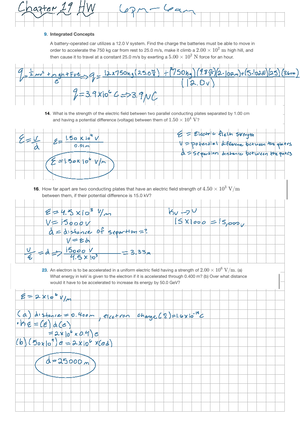 Chapter 19 HW 6pm-6am
9. Integrated Concepts
A battery-operated car utilizes a 12.0 V system. Find the charge the batteries must be able to move in
order to accelerate the 750 kg car from rest to 25.0 m/s, make it climb a 2.00 × 10² m high hill, and
then cause it to travel at a constant 25.0 m/s by exerting a 5.00 × 10² N force for an hour.
(12.0V)
14. What is the strength of the electric field between two parallel conducting plates separated by 1.00 cm
and having a potential difference (voltage) between them of 1.50 × 10⁴ V?
E = Electric field strength
V = potential difference between the plates
d = separation distance between the plates
E=1.50×10⁶ V/m
16. How far apart are two conducting plates that have an electric field strength of 4.50 × 10³ V/m
between them, if their potential difference is 15.0 kV?
E = 4.5×10³ V/m kV → V
V = 15000 V 15×1000 = 15,000v
d = distance of separation = ?
V = Ed
= 3.33m
22. An electron is to be accelerated in a uniform electric field having a strength of 2.00 × 10⁶ V/m. (a)
What energy in keV is given to the electron if it is accelerated through 0.400 m? (b) Over what distance
would it have to be accelerated to increase its energy by 50.0 GeV?
E = 2×10⁶ V/m
(a) distance = 0.400m, electron charge
d = 25000 m